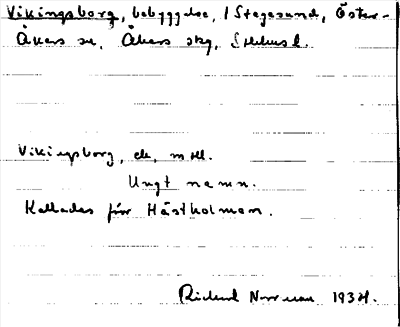 Vikingsborg, bebyggelse, i Stegesund, Öster-
Åkers sn, Åkers skg, Sthlms l.
Vikingsborg, ek, mtl.
Ungt namn.
Kallades förr Hästholmen.
Rickard Norrman 1934.